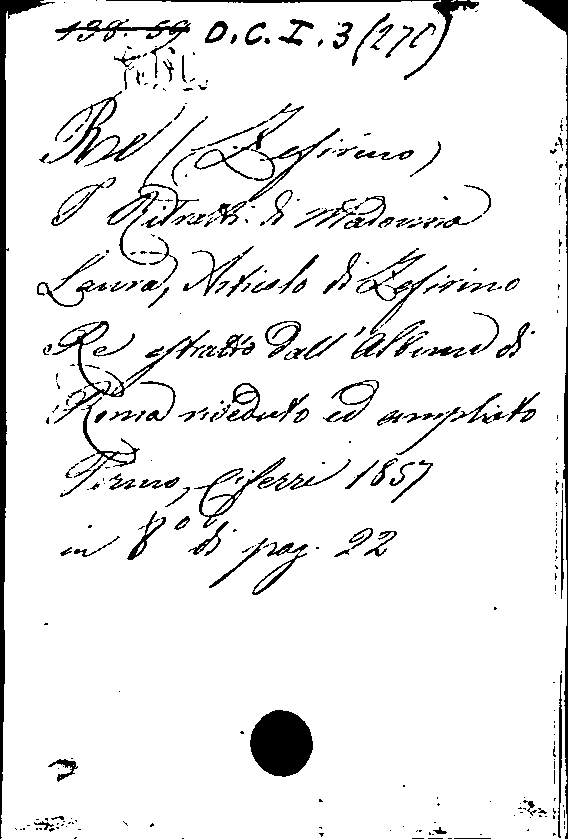 138-59 O.C.I.3 (270)
Re (Zefirino)
I Ritratti di Madonna
Laura, Articolo di Zefirino
Re estratto dall'Album di
Roma riveduto ed ampliato
Fermo, Ciferri 1857
in 8° di pag. 22